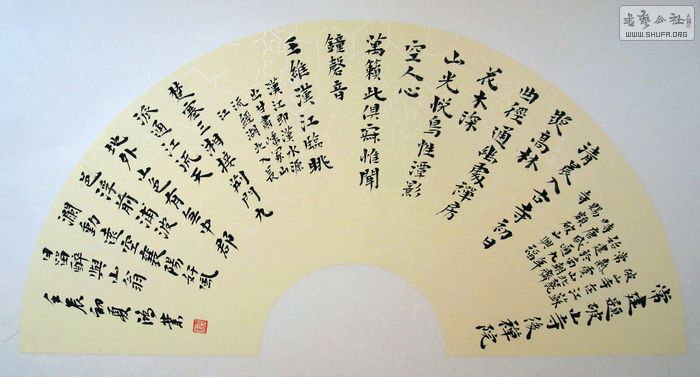 常建題破山寺後禪院
清晨入古寺初日
照高林
曲徑通幽處禪房
花木深
山光悅鳥性潭影
空人心
萬籟此俱寂惟聞
鐘磬音
王維漢江臨眺
漢江即漢水源
出甘肅冢山
流經湖北入長
江
楚塞三湘接荊門九
派通江流天
地外山色有無中郡
邑浮前浦波
瀾動遠空襄陽好風
日留醉與山翁
壬辰初夏鴻業
書藝公社
WWW.SHUFA.ORG